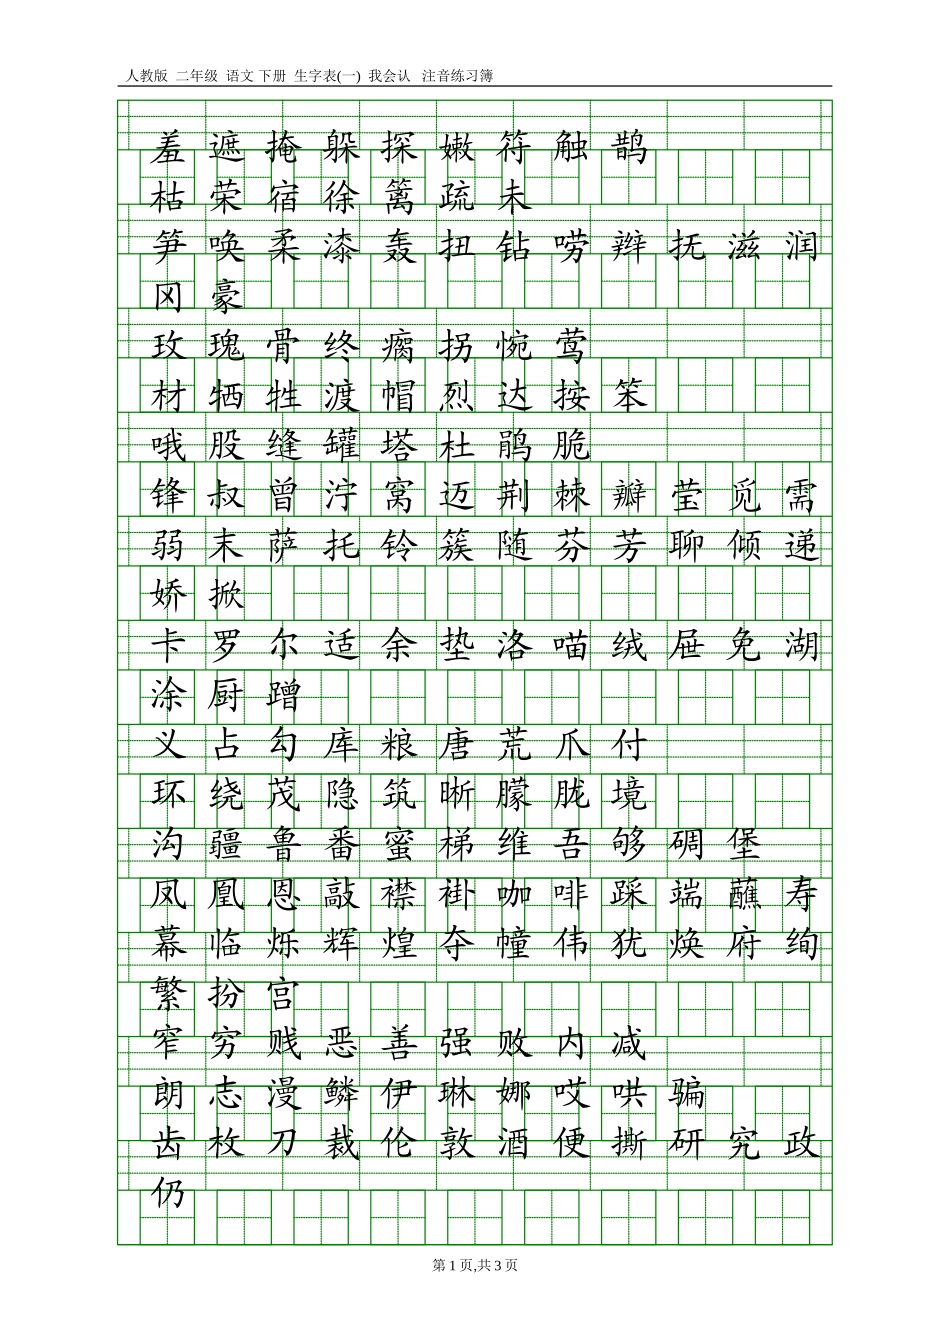 人教版 二年级 语文 下册 生字表(一) 我会认 注音练习簿
羞 遮 掩 躲 探 嫩 符 触 鹊
枯 荣 宿 徐 篱 疏 未
笋 唤 柔 漆 轰 扭 钻 唠 辫 抚 滋 润
冈 豪
玫 瑰 骨 终 瘸 拐 惋 莺
材 牺 牲 渡 帽 烈 达 按 笨
哦 股 缝 罐 塔 杜 鹃 脆
锋 叔 曾 泞 窝 迈 荆 棘 瓣 莹 觅 需
弱 末 萨 托 铃 簇 随 芬 芳 聊 倾 递
娇 掀
卡 罗 尔 适 余 垫 洛 喵 绒 屉 免 湖
涂 厨 蹭
义 占 勾 库 粮 唐 荒 爪 付
环 绕 茂 隐 筑 晰 朦 胧 境
沟 疆 鲁 番 蜜 梯 维 吾 够 碉 堡
凤 凰 恩 敲 襟 褂 咖 啡 踩 端 蘸 寿
幕 临 烁 辉 煌 夺 幢 伟 犹 焕 府 绚
繁 扮 宫
窄 穷 贱 恶 善 强 败 内 减
朗 志 漫 鳞 伊 琳 娜 哎 哄 骗
齿 枚 刀 裁 伦 敦 酒 便 撕 研 究 政
仍
第 1 页,共 3 页